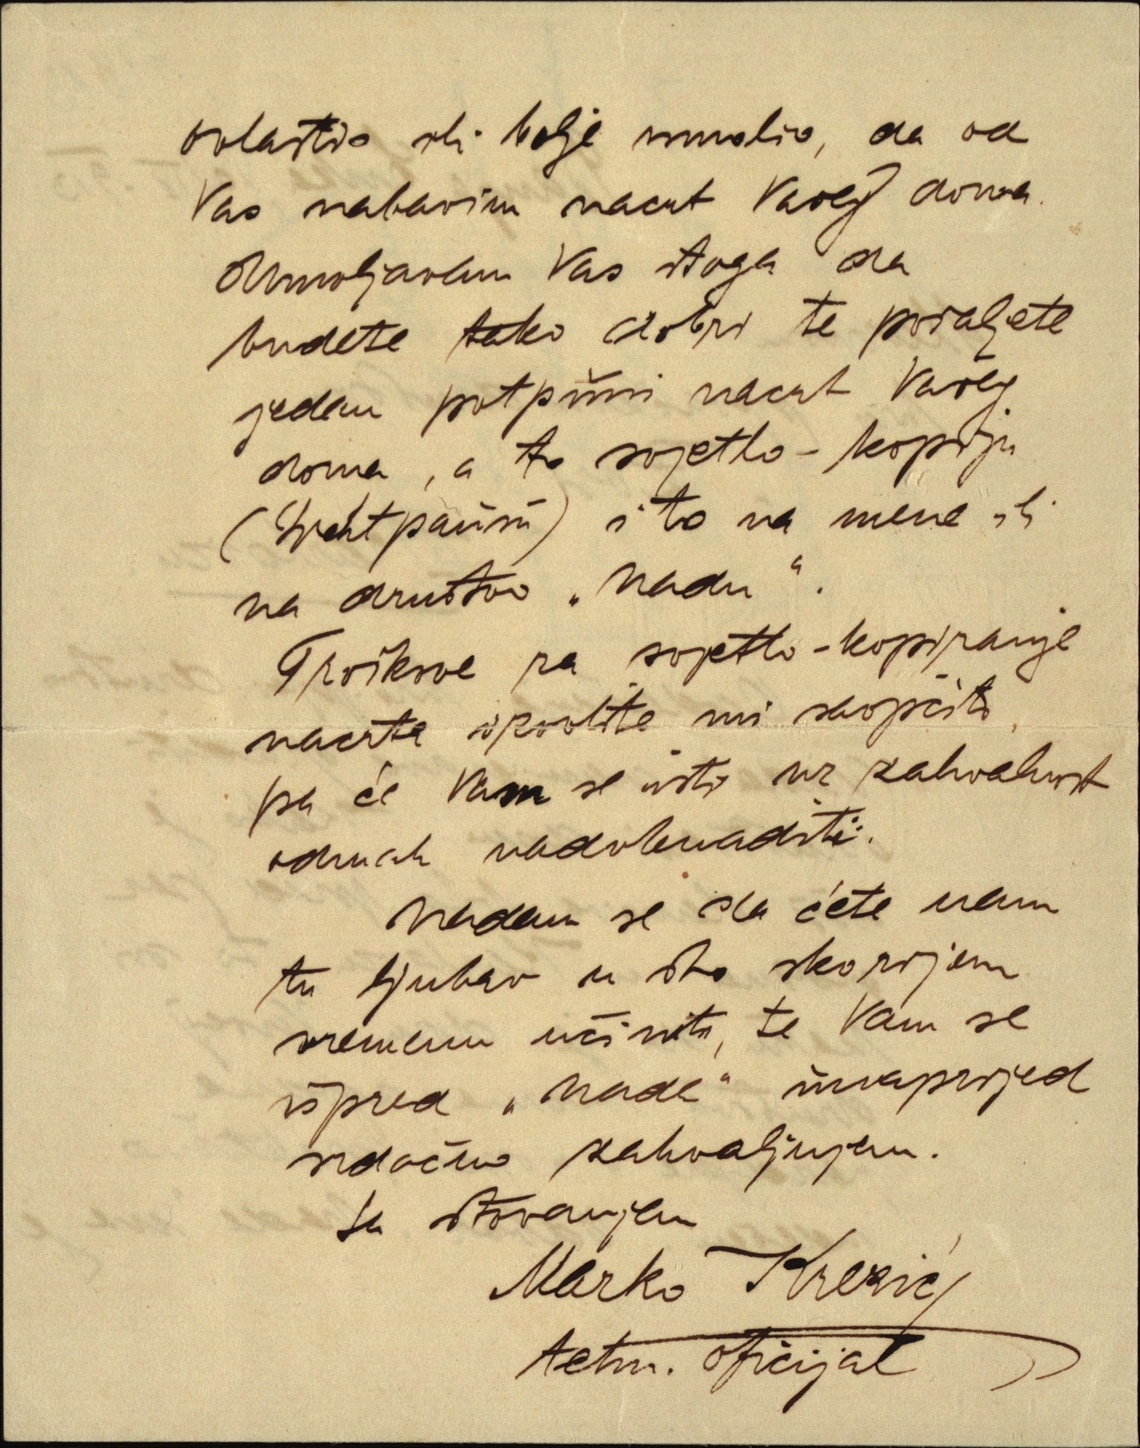 ovlastio ili bolje umolio, da od
Vas nabavim nacrt Vašeg doma.
Umoljavam Vas stoga da
budete tako dobri te pošaljete
jedan potpuni nacrt Vašeg
doma, a to svjetlo-kopiju
(Lichtpausu) i to na mene ili
na društvo „Nadu“.
Troškove za svjetlo-kopiranje
nacrta izvolite mi saopćiti,
pa će Vam se isti uz zahvalnost
odmah nadoknaditi.
Nadam se da ćete nam
tu ljubav u što skorijem
vremenu učiniti, te Vam se
ispred „Nade“ unaprijed
srdačno zahvaljujem.
Sa štovanjem
Marko Krezić
tehn. oficijal